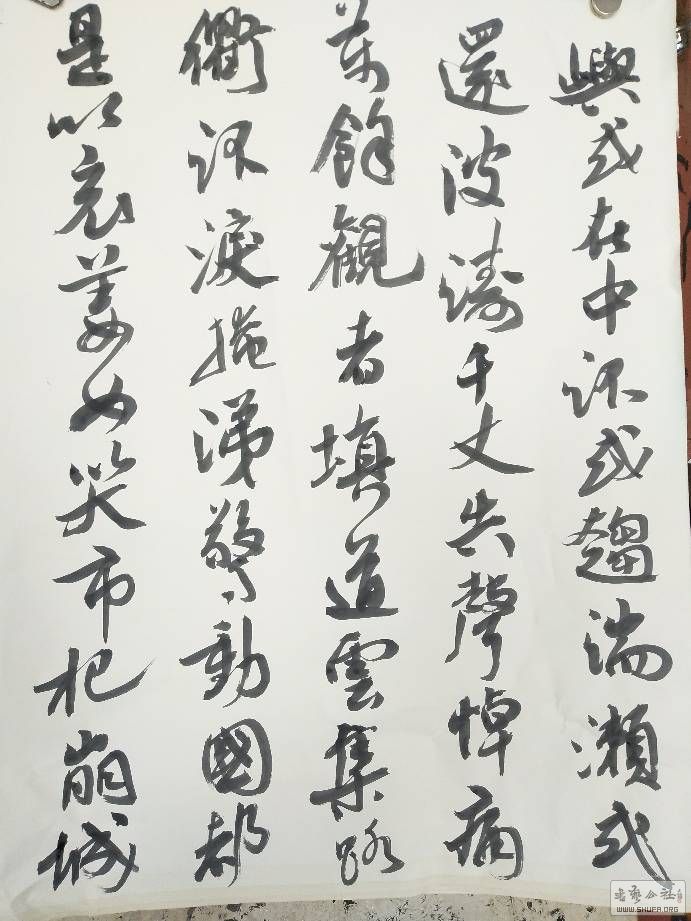 嶼或在中流或趨湍瀨或
還波濤千丈失聲悼痛
萬餘觀者填道雲集路
衢流淚掩涕驚動國都
是以哀姜女哭市杞崩城
书艺公社
WWW.SHUFA.ORG